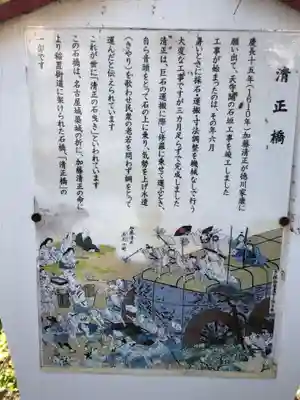 清正橋
慶長十五年(一6一0年)加藤清正が徳川家康に
願い出て、天守閣の石垣工事を竣工しました
工事が始まったのは、その年六月
暑いさ中に採石・運搬・寸法調整を機械なしで行う
大変な工事ですが三カ月足らずで完成しました
清正は、巨石の運搬に際し修羅に乗せて運ぶとき、
自ら音頭をとって石の上に乗り、気勢を上げ木遣
(きやり)を歌わせ民衆の老若を問わず綱をとって
運んだと伝えられています
これが世に「清正の石曳き」といわれています
この石橋は、名古屋城築城の折に、加藤清正の命に
より稲置街道に架けられた石橋、「清正橋」の
一部です